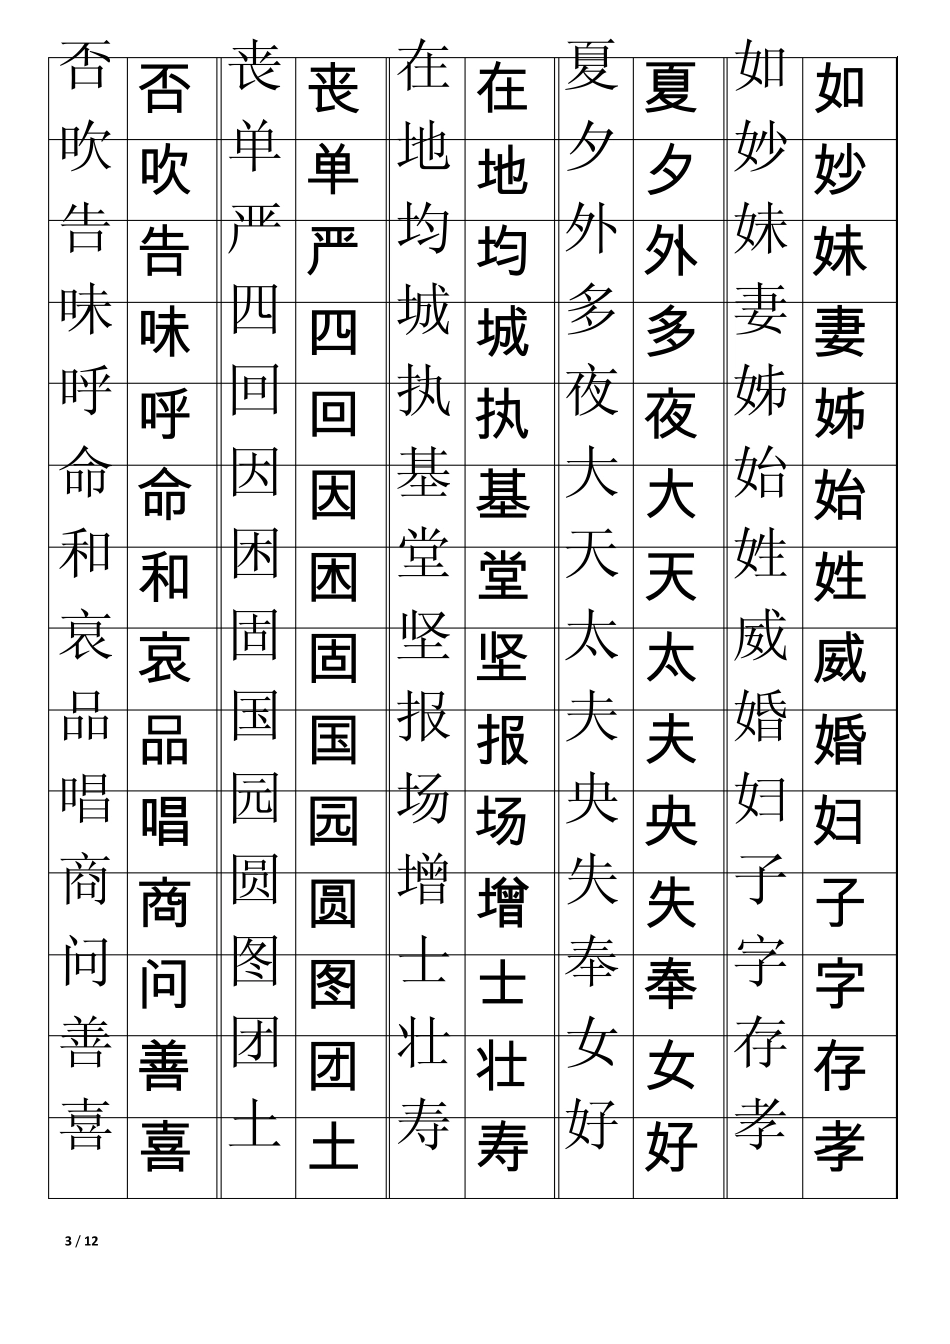 否 否 丧 丧 在 在 夏 夏 如 如
吹 吹 单 单 地 地 夕 夕 妙 妙
告 告 严 严 均 均 外 外 妹 妹
味 味 四 四 城 城 多 多 妻 妻
呼 呼 回 回 执 执 夜 夜 姊 姊
命 命 因 因 基 基 大 大 始 始
和 和 困 困 堂 堂 天 天 姓 姓
哀 哀 固 固 坚 坚 太 太 威 威
品 品 国 国 报 报 夫 夫 婚 婚
唱 唱 园 园 场 场 央 央 妇 妇
商 商 圆 圆 增 增 失 失 子 子
问 问 图 图 士 士 奉 奉 字 字
善 善 团 团 壮 壮 女 女 存 存
喜 喜 土 土 寿 寿 好 好 孝 孝
3 / 12